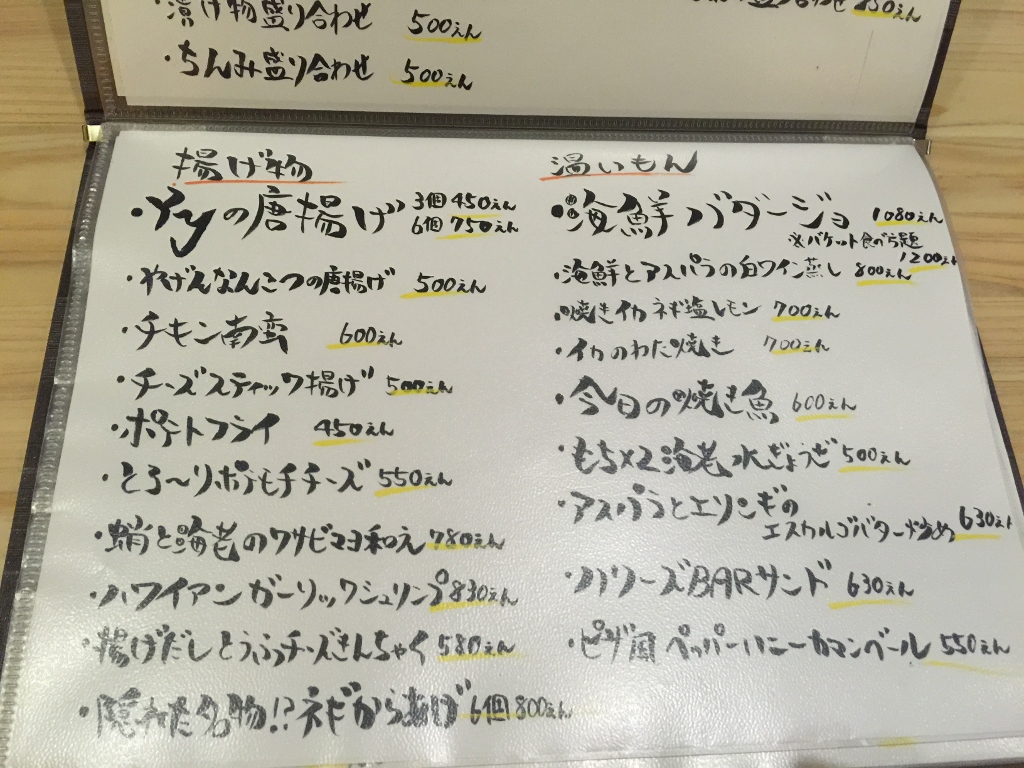 漬け物盛り合わせ 500えん
・ちんみ盛り合わせ 500えん
盛り合わせ
揚げ物
・Yyの唐揚げ 3個 450えん
6個 750えん
・やげんなんこつの唐揚げ 500えん
・チキン南蛮 600えん
・チーズスティック揚げ 500えん
・ポテトフライ 450えん
・とろ〜りポテもチチーズ 550えん
・蛸と海老のワサビマヨ和え 780えん
・ハワイアンガーリックシュリンプ 830えん
・揚げだしとうふチーズきんちゃく 580えん
・隠れた名物!?ネギからあげ 6個 800えん
温いもん
・海鮮バダージョ 1080えん
※バケット食べ放題
1200えん
・海鮮とアスパラの白ワイン蒸し 800えん
・焼きイカネギ塩レモン 700えん
・イカのわた焼き 700えん
・今日の焼き魚 600えん
・もち×2海老水ぎょうざ 500えん
・アスパラとエリンギの
エスカルゴバター炒め 630えん
・ハワーズBARサンド 630えん
・ピザ風ペッパーハニーカマンベール 550えん